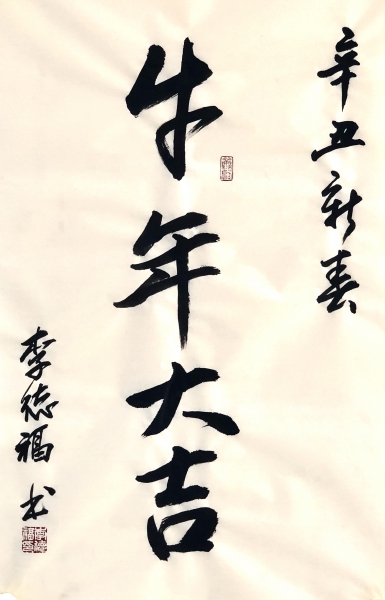 辛丑新春
牛年大吉
李德福书